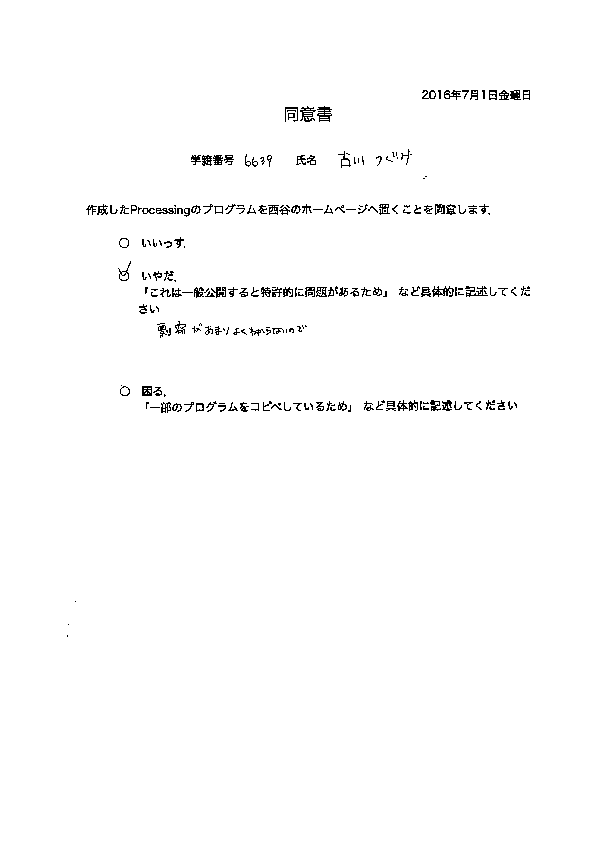 2016年7月1日金曜日
同意書
学籍番号 6639 氏名 古川 つぐみ
作成したProcessingのプログラムを西谷のホームページへ置くことを同意します.
○ いいっす.
○ いやだ.
「これは一般公開すると特許的に問題があるため」 など具体的に記述してくだ
さい
があまりよくわからないので
○ 困る.
「一部のプログラムをコピペしているため」 など具体的に記述してください